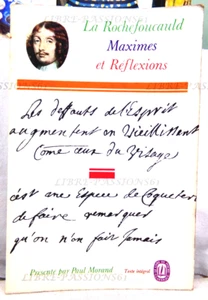 La Rochefoucauld
Maximes
et Réflexions
LIBRE-PASSIONS63
Les deffauts de l'Esprit
augmentent en Vieillissant
Come ceux du Visage
LIBRE-PASSIONS63
c'est une Espece de Coqueterie
de faire remarquer
qu'on n'en fait Jamais
LIBRE-PASSIONS63
Présenté par Paul Morand
Texte intégral